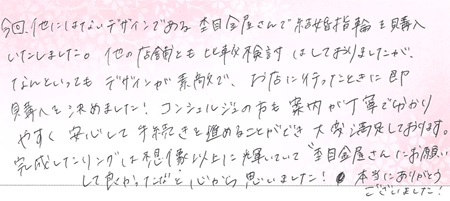 今回、他にはないデザインである杢目金屋さんで結婚指輪を購入
いたしました。他の店舗とも比較検討はしておりましたが、
なんといってもデザインが素敵で、お店に行ったときに即
購入を決めました！コンシェルジュの方も案内が丁寧で分かり
やすく安心して手続きを進めることができ大変満足しております。
完成したリングは想像以上に輝いていて"杢目金屋さんにお願い
して良かったな"と心から思いました！本当にありがとう
ございました！